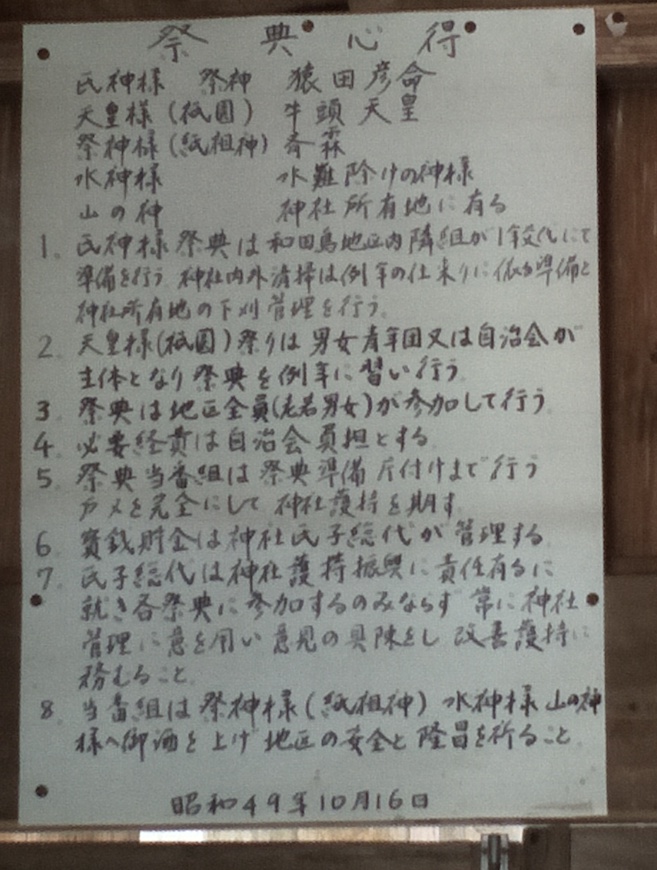 祭典心得
氏神様 祭神 猿田彦命
天皇様(祇園) 牛頭天皇
祭神様(紙祖神) 斉霖
水神様 水難除けの神様
山の神 神社所有地に有る
1. 氏神様祭典は和田島地区内隣組が1年交代にて
準備を行う 神社内外清掃は例年の仕来りに依る準備と
神社所有地の下刈管理を行う。
2. 天皇様(祇園)祭りは男女青年団又は自治会が
主体となり祭典を例年に習い行う
3. 祭典は地区全員(老若男女)が参加して行う
4. 必要経費は自治会員担とする
5 祭典当番組は祭典準備片付けまで行う
〆を完全にして神社護持を期す
6 賽銭貯金は神社氏子総代が管理する
7. 氏子総代は神社護持振興に責任有るに
就き各祭典に参加するのみならず 常に神社
管理に意を用い意見の具陳をし 改善護持に
務むること
8 当番組は祭神様(紙祖神) 水神様 山の神
様へ御酒を上げ地区の安全と隆昌を祈ること
昭和49年10月16日